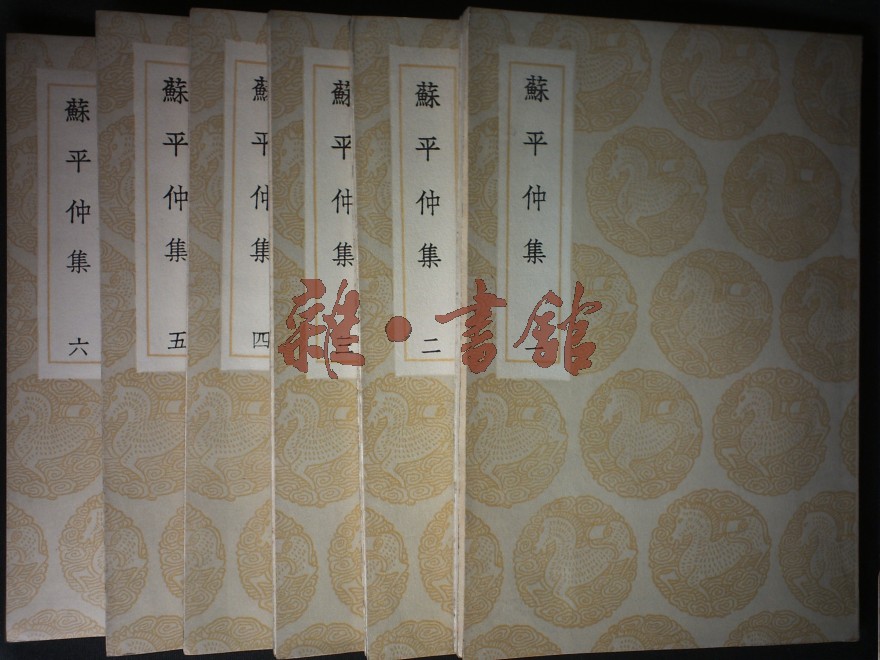 蘇平仲集 一
蘇平仲集 二
蘇平仲集 三
蘇平仲集 四
蘇平仲集 五
蘇平仲集 六
雜·書館